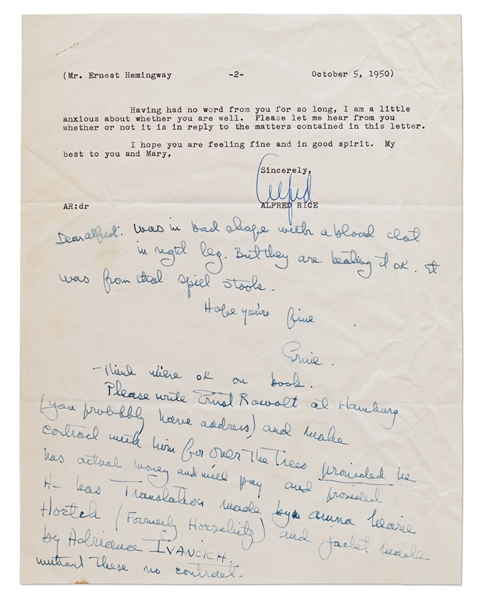 (Mr. Ernest Hemingway -2- October 5, 1950)
Having had no word from you for so long, I am a little
anxious about whether you are well. Please let me hear from you
whether or not it is in reply to the matters contained in this letter.
I hope you are feeling fine and in good spirit. My
best to you and Mary,
Sincerely,
Alfred
ALFRED RICE
AR:dr
Dear Alfred: was in bad shape with a blood clot
in right leg. But they are beating it ok. It
was from that spiel
Hope you're fine
Ernie.
- Think we're ok on book.
Please write Ernst Rowolt at Hamburg
(you probably have address) and make
contract with him for over The Trees provided he
has actual money and will pay and provided
He has Translation made by anna
Hoetch (Formerly Horschitz) and jacket made
by Adrianna IVANCICH.
without these no contract.